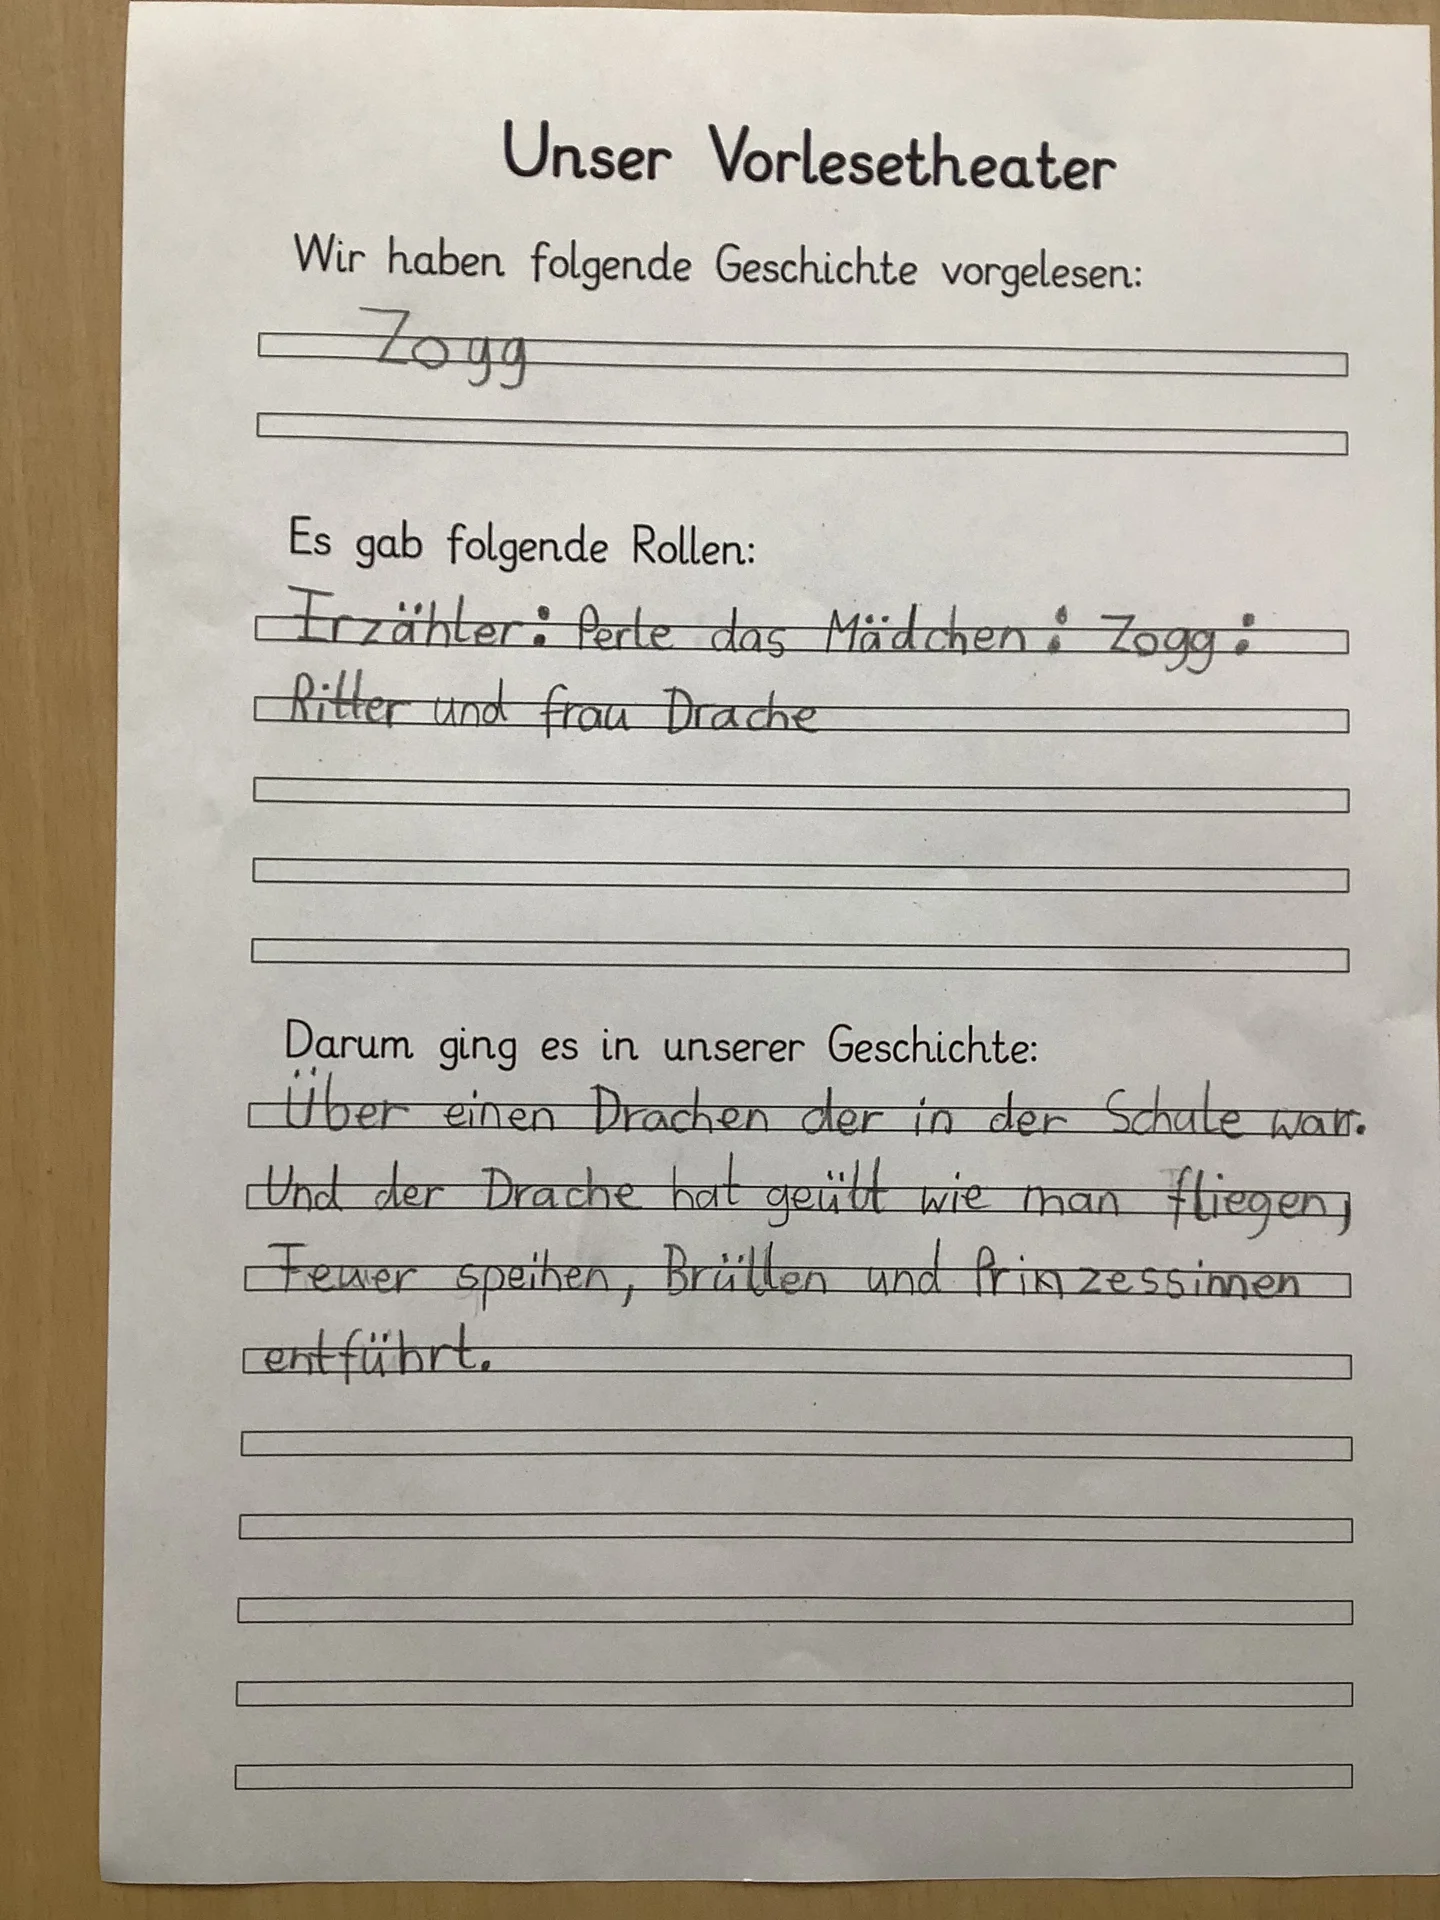 Unser Vorlesetheater
Wir haben folgende Geschichte vorgelesen:
Zogg
Es gab folgende Rollen:
Erzähler: Perle das Mädchen: Zogg:
Ritter und frau Drache
Darum ging es in unserer Geschichte:
Über einen Drachen der in der Schule war.
Und der Drache hat geübt wie man fliegen,
Feuer speihen, Brüllen und Prinzessinnen
entführt.